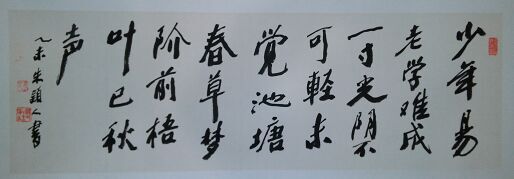 少年易
老学难成
一寸光阴不
可輕未
觉池塘
春草梦
阶前梧
叶已秋
声
乙未朱頭人書